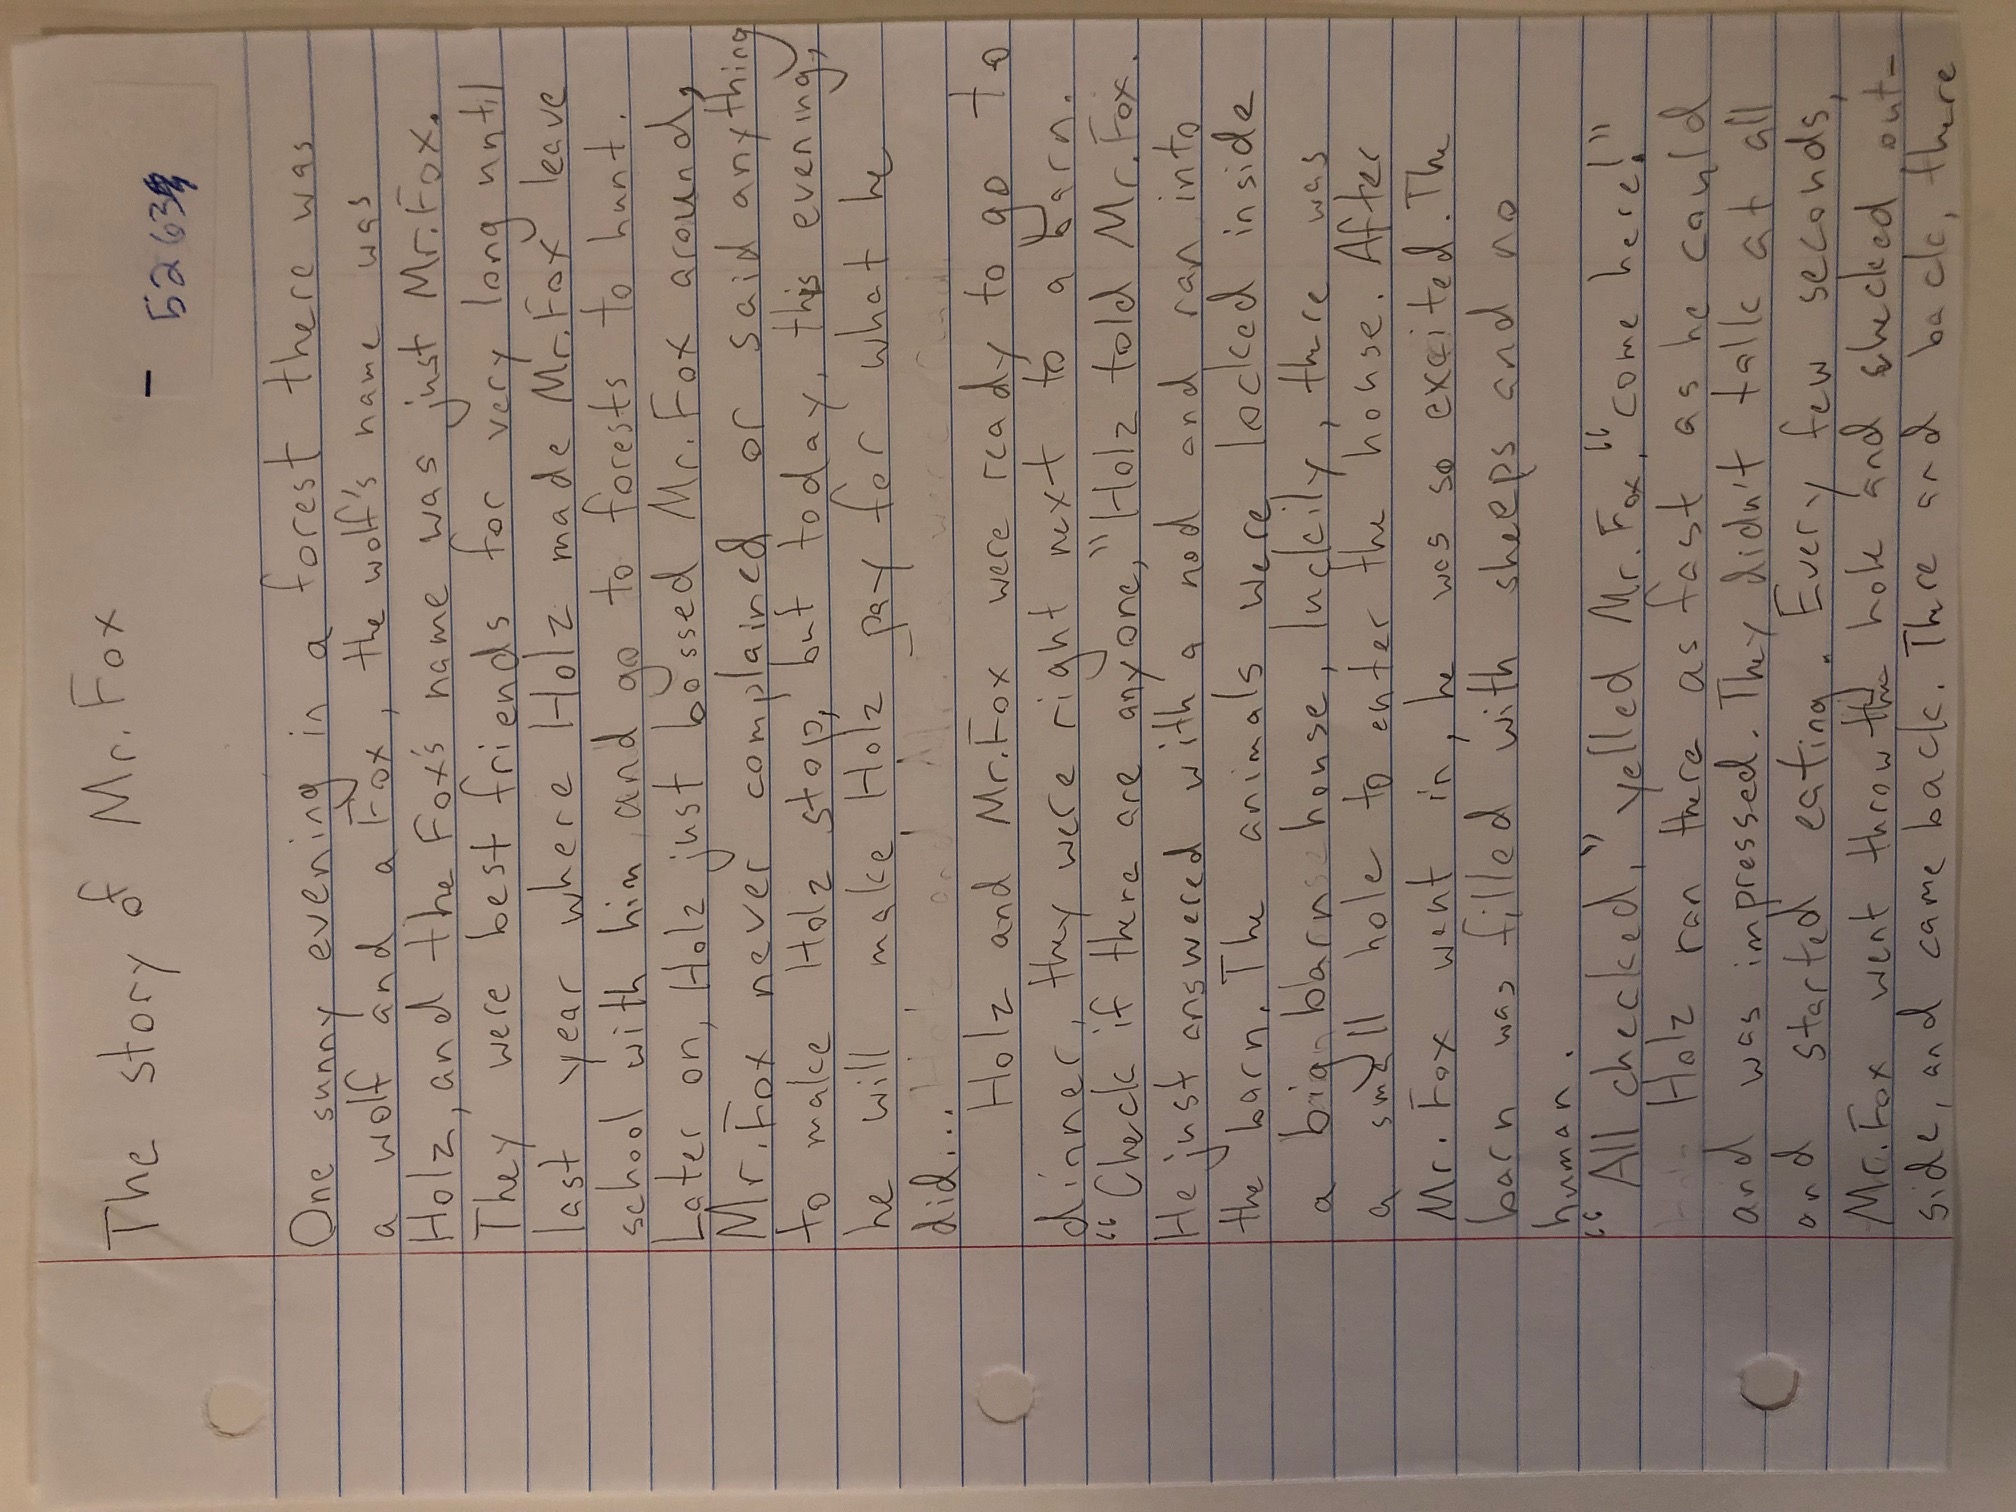 The story of Mr. Fox
- 5263
One sunny evening in a forest there was
a wolf and a Fox, the wolf's name was
Holz, and the Fox's name was just Mr. Fox.
They were best friends for very long until
last year where Holz made Mr. Fox leave
school with him and go to forests to hunt.
Later on, Holz just bossed Mr. Fox around,
Mr. Fox never complained or said anything
to make Holz stop, but today, this evening,
he will make Holz pay for what he
did...
Holz and Mr. Fox were ready to go to
dinner, they were right next to a barn.
"Check if there are anyone," Holz told Mr. Fox.
He just answered with a nod and ran into
the barn. The animals were locked inside
a big barn house, luckily, there was
a small hole to enter the house. After
Mr. Fox went in, he was so excited. The
barn was filled with sheeps and no
human.
"All checked," yelled Mr. Fox, "come here!"
Holz ran there as fast as he could
and was impressed. They didn't talk at all
and started eating. Every few seconds,
Mr. Fox went throw the hole and checked out-
side, and came back. There and back, there